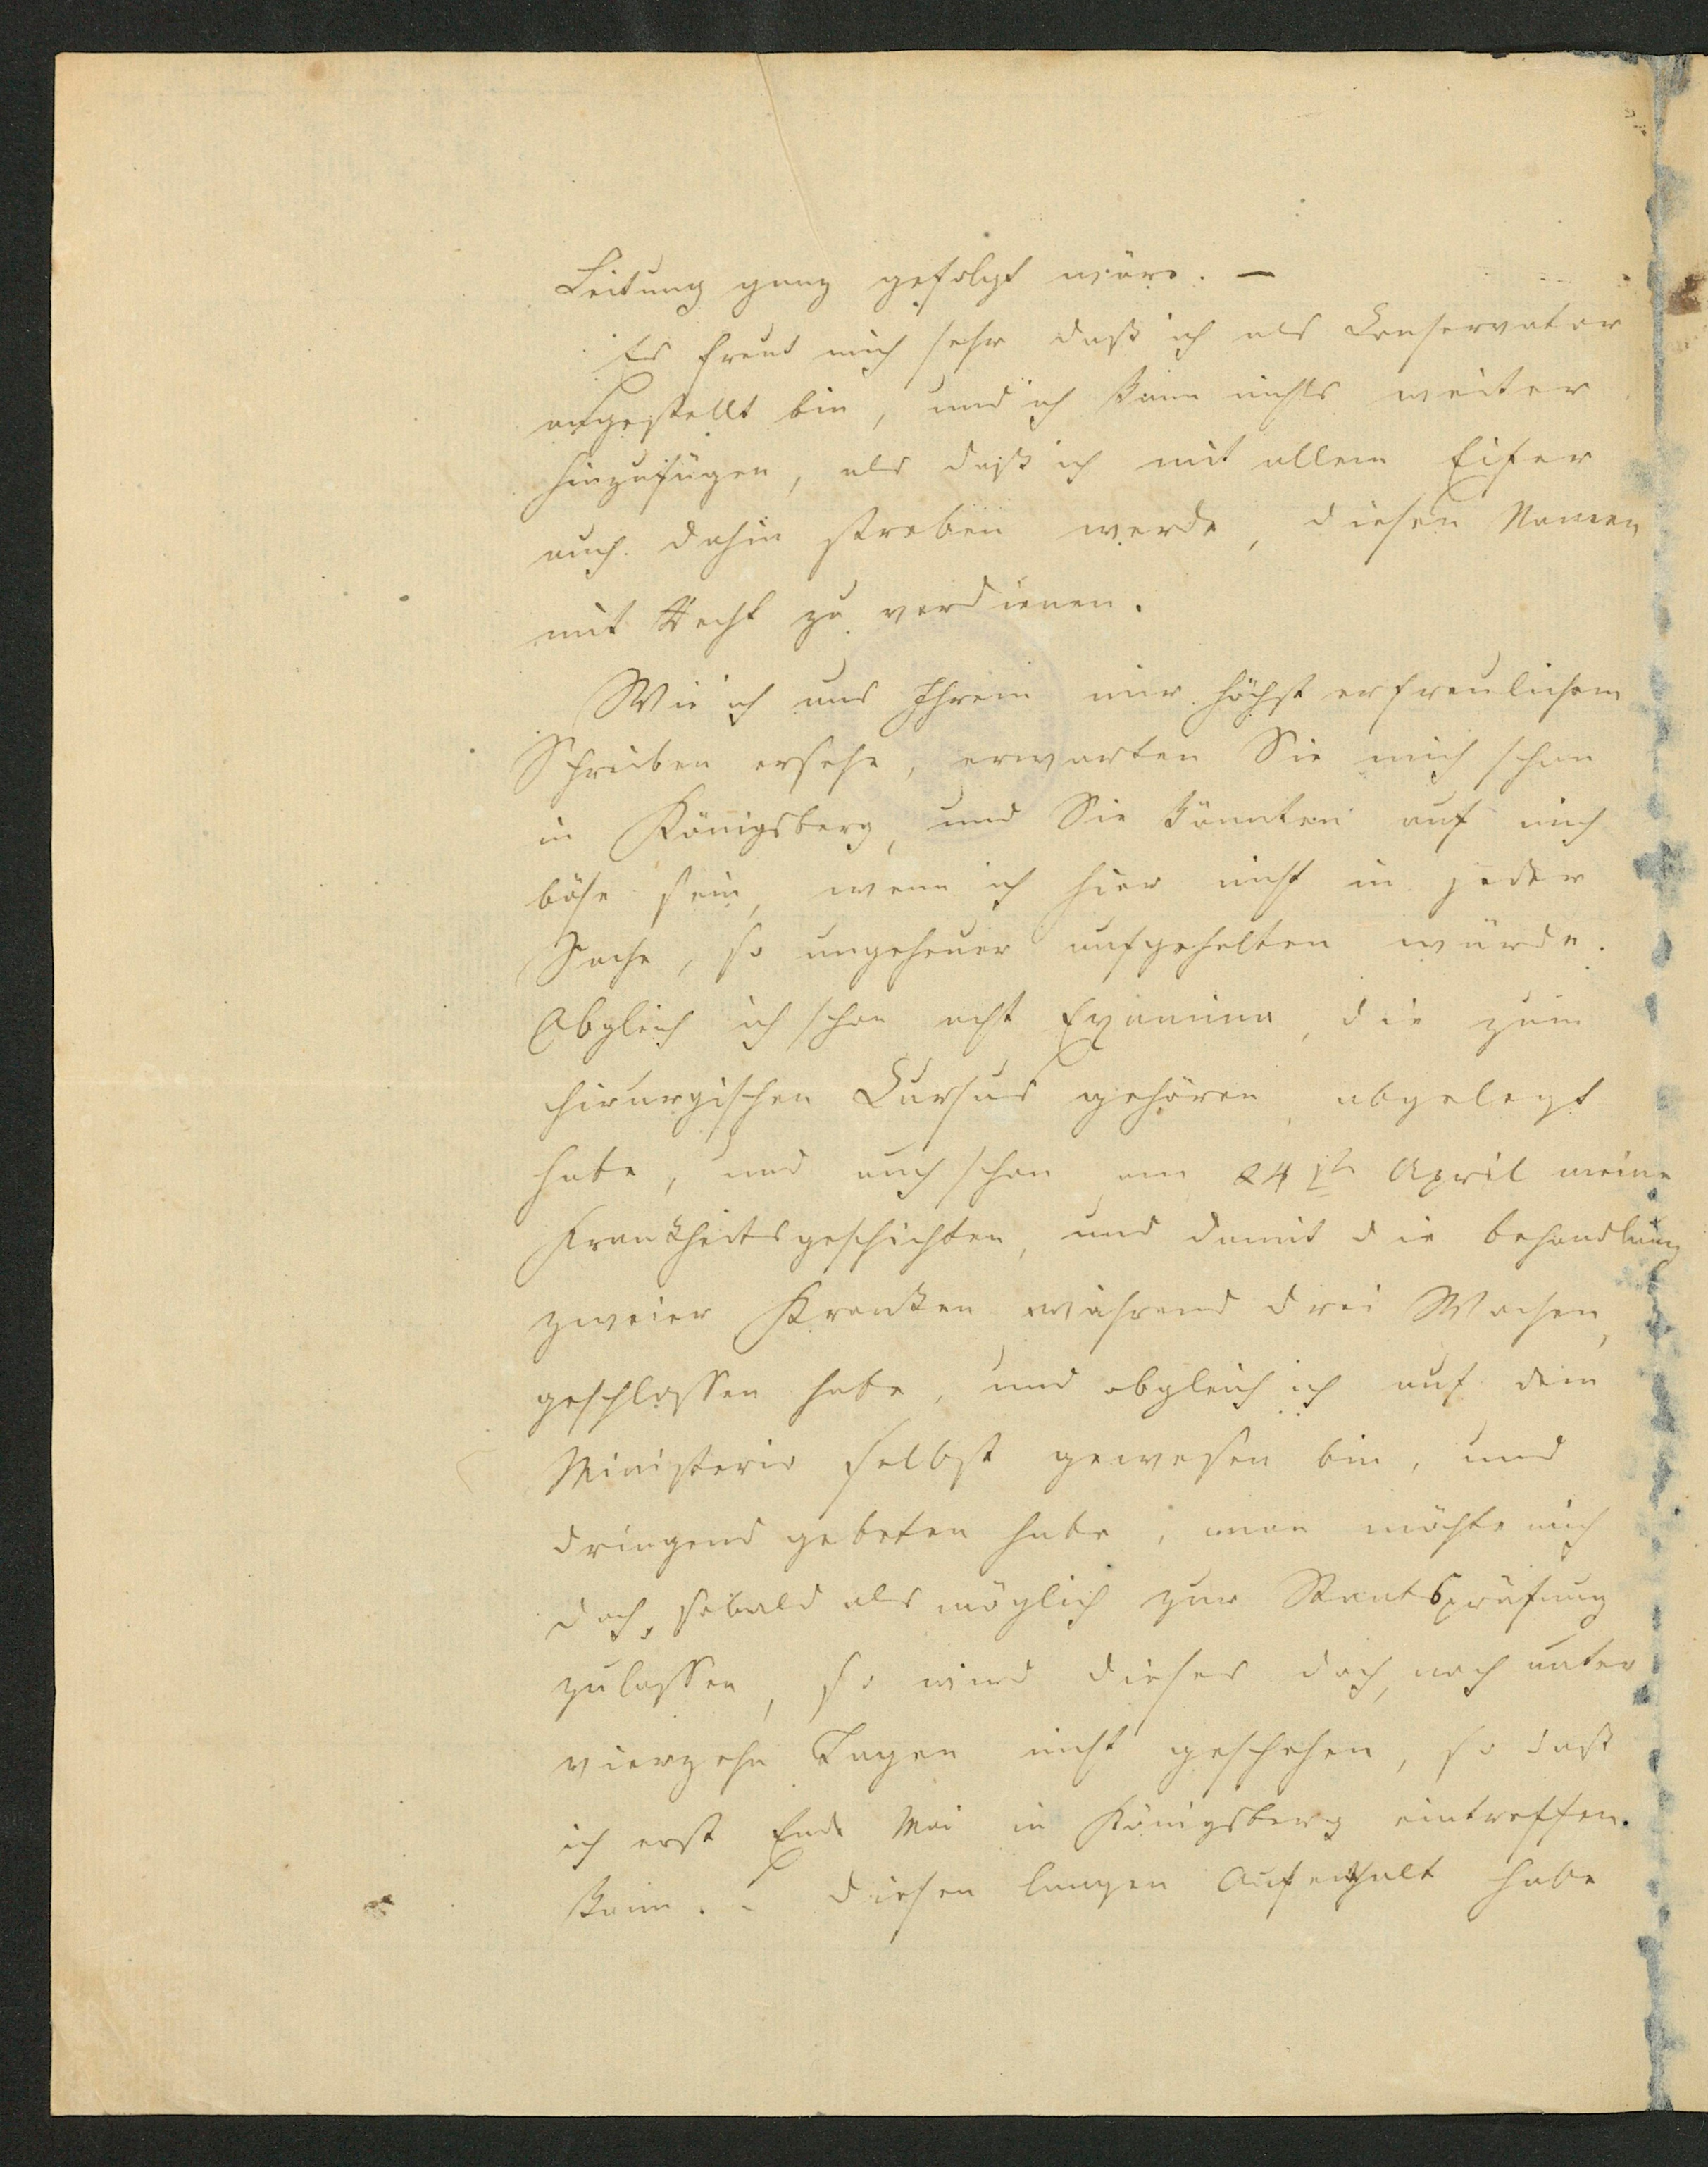 Leitung ganz gefolgt wäre. —
Es freut mich sehr daß ich als Conservator
angestellt bin, und ich kann nichts weiter
hinzufügen, als daß ich mit allem Eifer
auch dahin streben werde, diesen Namen
mit Recht zu verdienen.
Wie ich aus Ihrem mir höchst erfreulichem
Schreiben ersehe, erwarten Sie mich schon
in Königsberg, und Sie könnten auf mich
böse sein, wenn ich hier nicht in jeder
Sache, so ungeheuer aufgehalten würde.
Obgleich ich schon acht Examina, die zum
chirurgischen Cursus gehören, abgelegt
habe, und auch schon am 24ste April meine
Krankheitsgeschichten, und damit die behandlung
zweier Kranken während drei Wochen,
geschlossen habe, und obgleich ich auf dem
Ministerio selbst gewesen bin, und
dringend gebeten habe, man möchte mich
doch, sobald als möglich zur Staatsprüfung
zulassen, so wird dieses doch, noch unter
vierzehn Tagen nicht geschehen, so daß
ich erst Ende Mai in Königsberg eintreffen
kann. – Diesen langen Aufenthalt habe